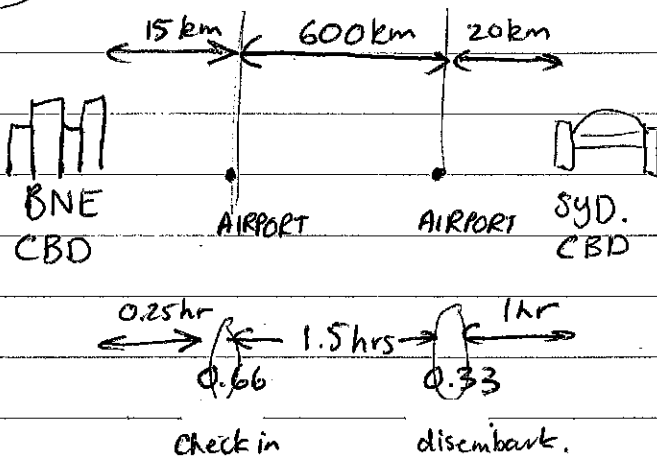 15 km 600 km 20 km
BNE AIRPORT AIRPORT SYD.
CBD CBD
0.25hr 1.5 hrs 1hr
0.66 0.33
Check in disembark.